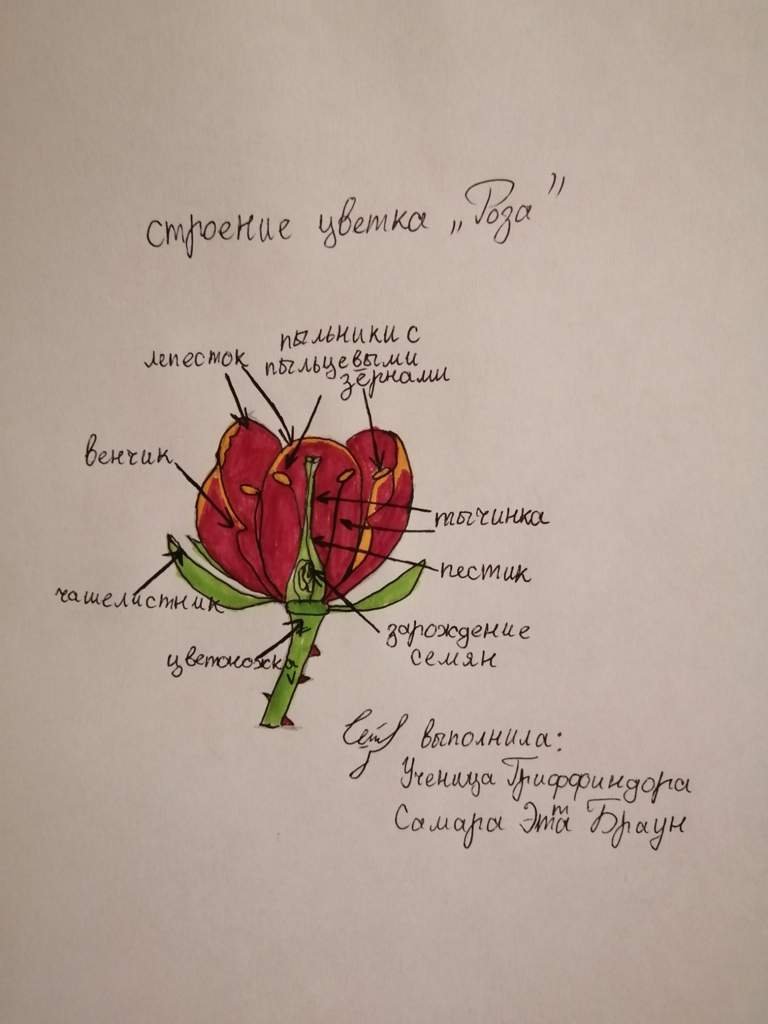 строение цветка „Роза”
лепесток
пыльники с
пыльцевыми
зёрнами
венчик
тычинка
пестик
чашелистник
зарождение
семян
цветоножка
выполнила:
Ученица Гриффиндора
Самара Этта Браун